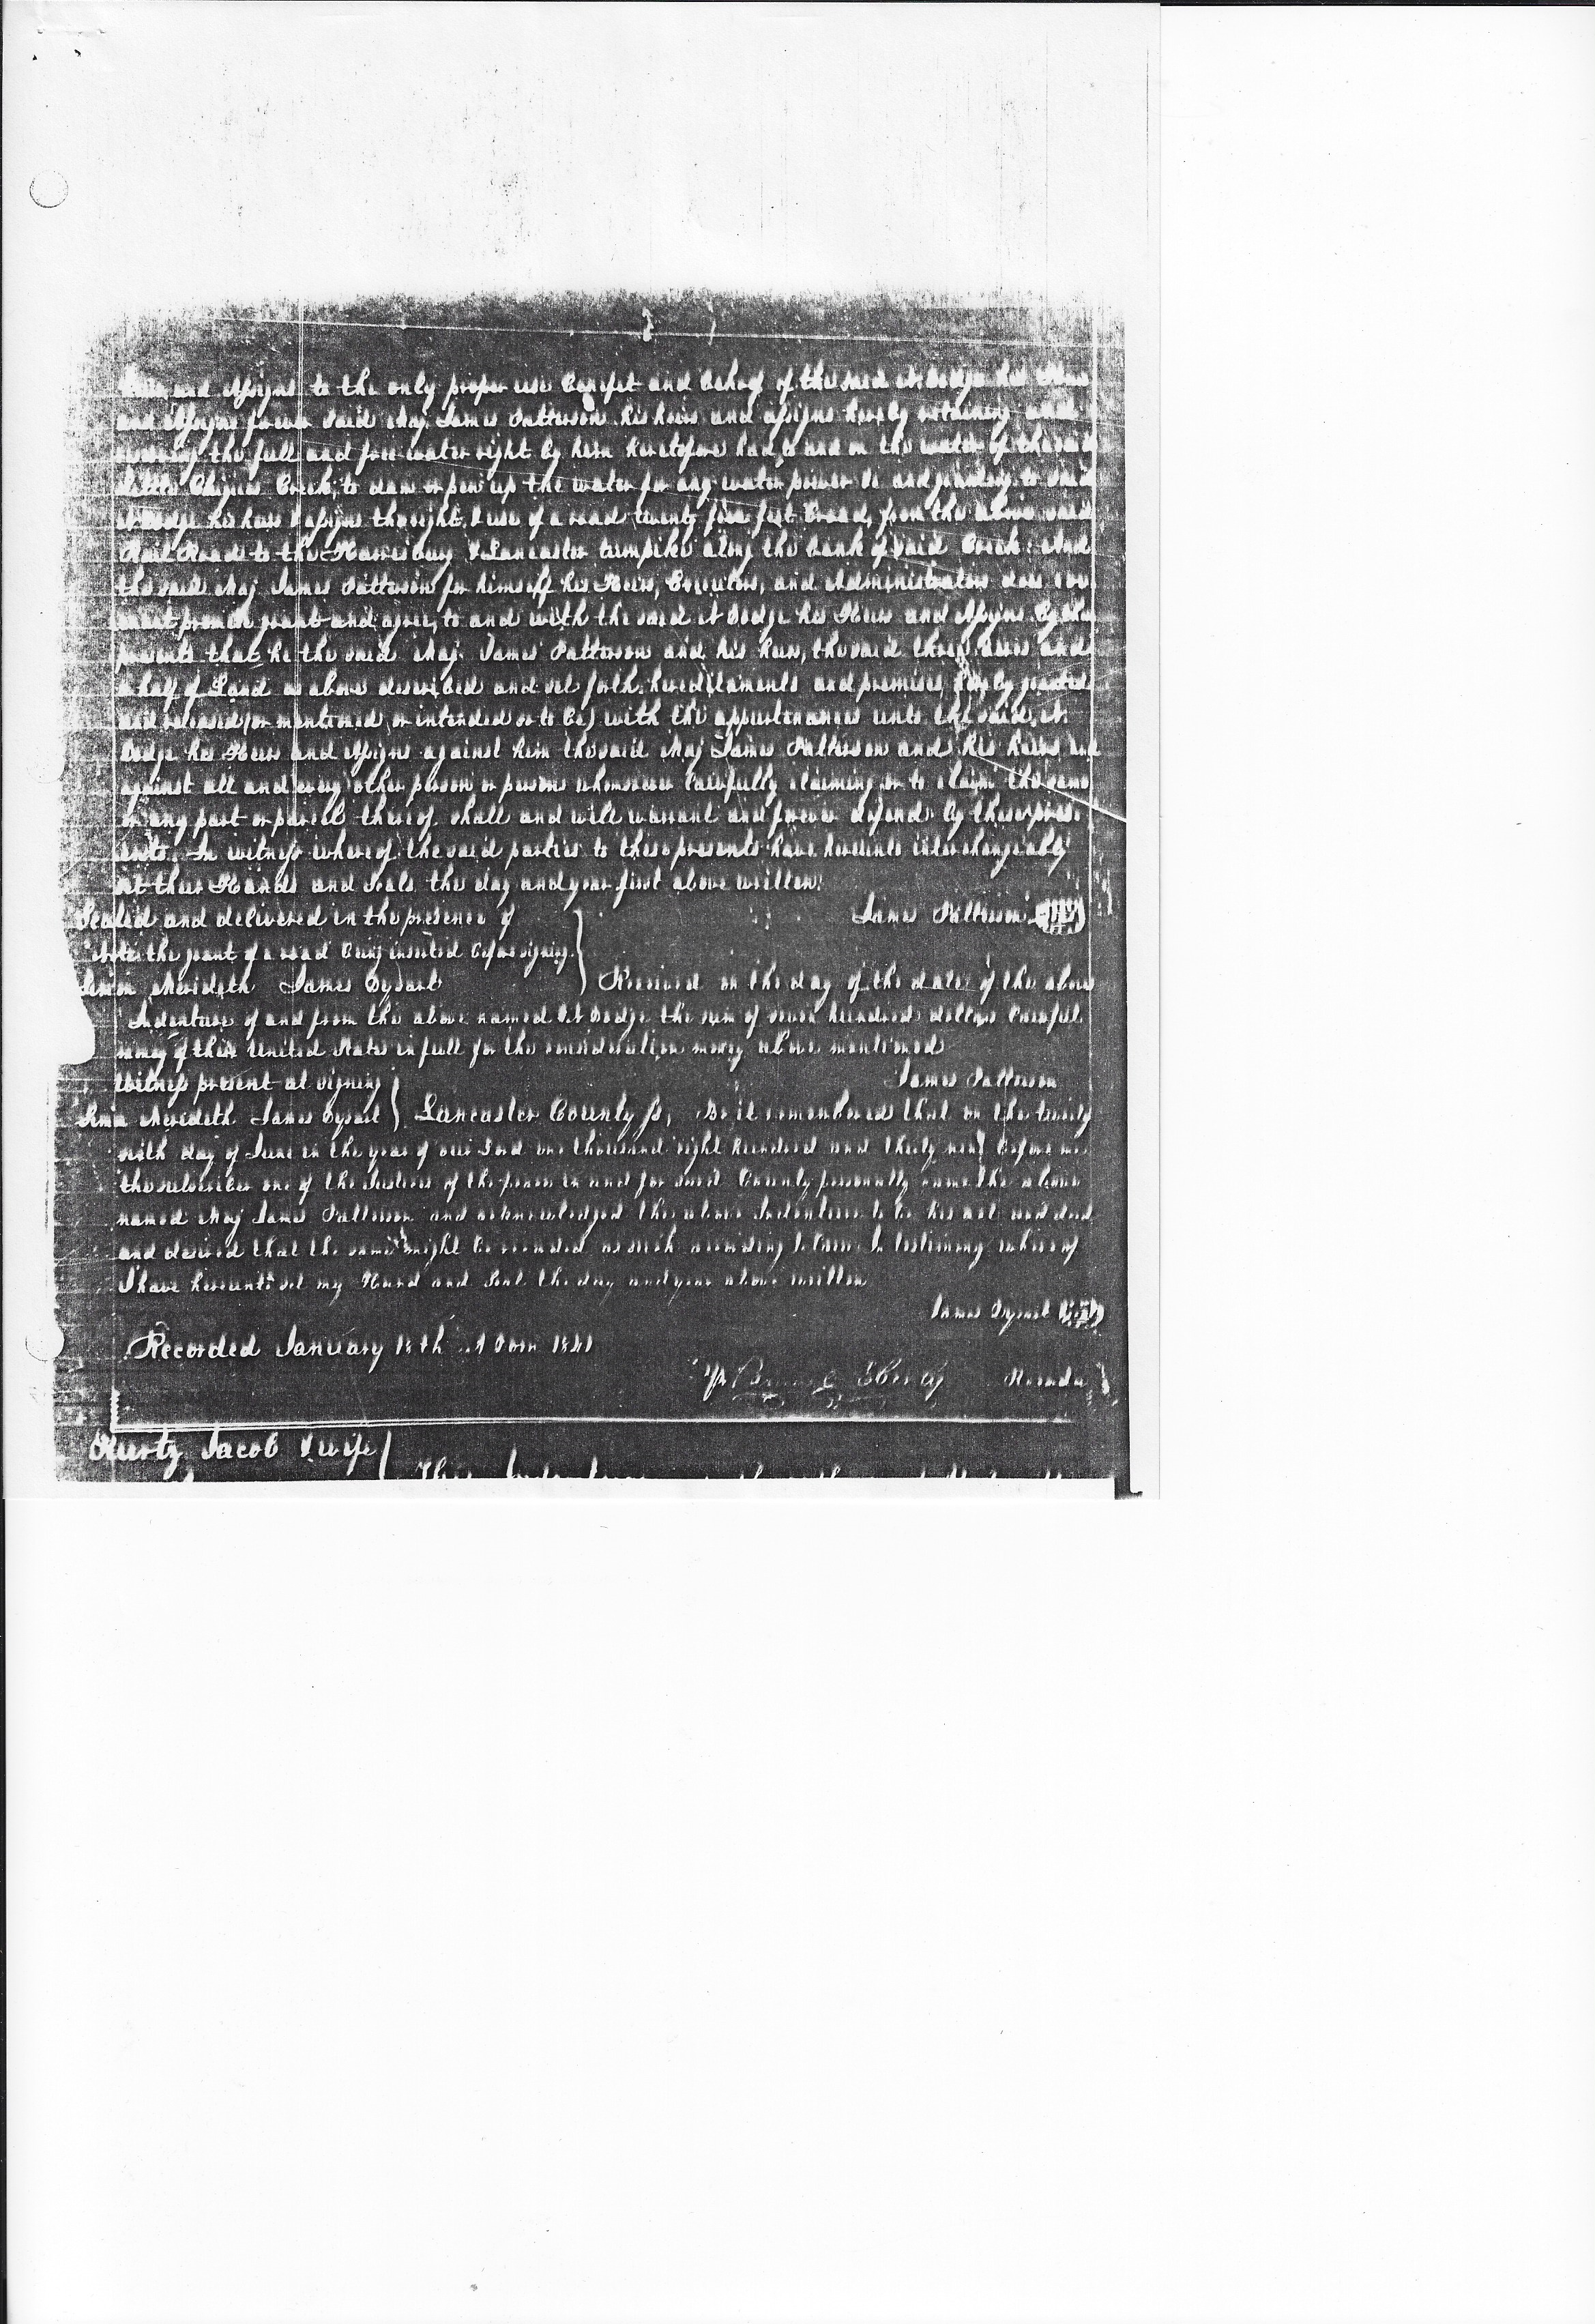 and Assigns to the only proper use benefit and behoof of the said A. Dodge his Heirs
and Assigns forever said Maj James Patterson his heirs and assigns hereby retaining and
the full and free water right by him heretofore had, and on the water of the said
Little Chiques Creek, to dam or pen up the water for any water power &c and granting to said
A Dodge his heirs & assigns the right & use of a road twenty five feet broad, from the above said
Rail Road to the Harrisburg & Lancaster turnpike along the bank of said Creek: And
the said Maj James Patterson for himself his Heirs, Executors, and Administrators does cov
enant promise grant and agree, to and with the said A Dodge his Heirs and Assigns by these
presents that he the said Maj. James Patterson and his heirs, the said three acres and
a half of Land as above described and set forth, hereditaments and premises hereby granted
and released (or mentioned or intended so to be) with the appurtenances unto the said, A.
Dodge his Heirs and Assigns against him the said Maj James Patterson and his heirs and
against all and every other person or persons whomsoever lawfully claiming or to claim the same
or any part or parcell thereof, shall and will warrant and forever defend by these pres-
ents. In witness whereof the said parties to these presents have hereunto interchangeably
set their Hands and Seals the day and year first above written.
Sealed and delivered in the presence of James Patterson
Note the grant of a road being inserted before signing.
Simon Merideth James Dysart } Received on the day of the date of the above
Indenture of and from the above named A Dodge the sum of seven hundred dollars lawful
money of these United States in full for the consideration money above mentioned
Witness present at signing James Patterson
Simon Merideth James Dysart } Lancaster County ss, Be it remembered that on the twenty
sixth day of June in the year of our Lord one thousand eight hundred and thirty nine before me
the subscriber one of the Justices of the peace in and for said County personally came the above
named Maj James Patterson and acknowledged the above Indenture to be his act and deed
and desired that the same might be recorded as such according to law. In testimony whereof
I have hereunto set my Hand and Seal the day and year above written
James Dysart
Recorded January 18th A Dom 1841
Recorder
Kurtz Jacob & wife }
This Indenture